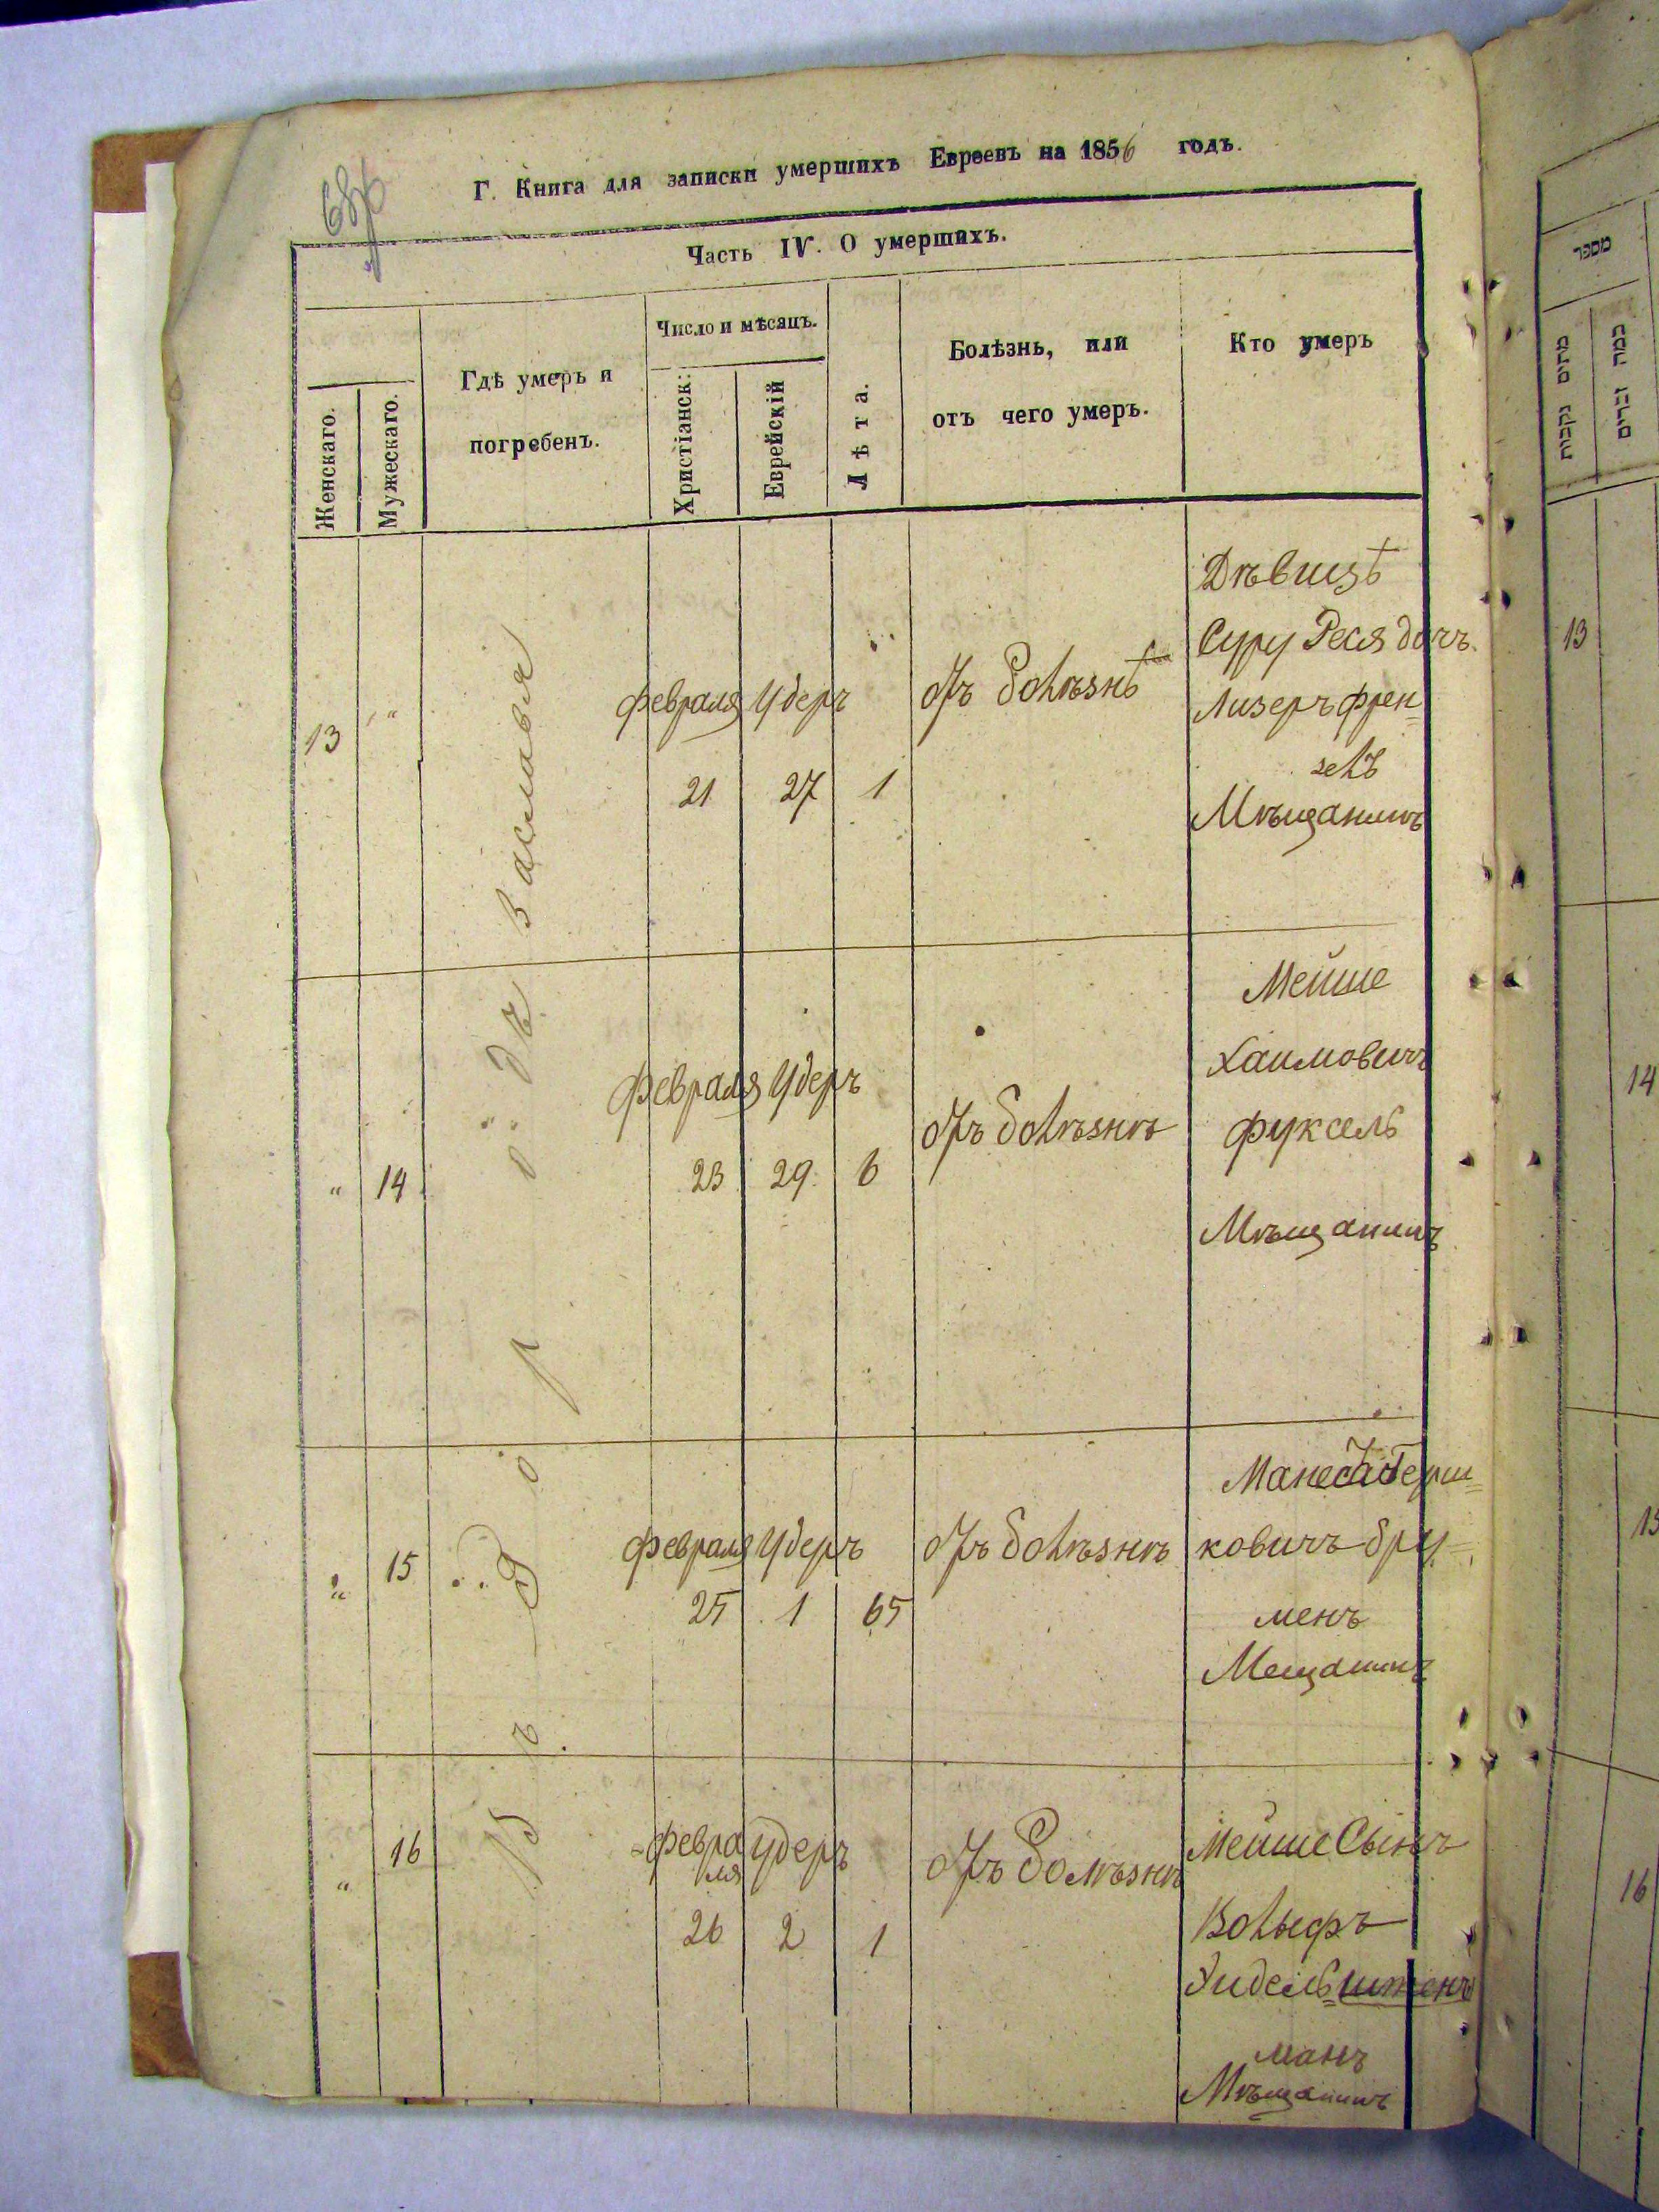 Г. Книга для записки умершихъ Евреевъ на 1856 годъ.
Часть IV. О умершихъ.
Женскаго.
Мужескаго.
Гдѣ умеръ и
погребенъ.
Число и мѣсяцъ.
Христіанск:
Еврейскій
Лѣта.
Болѣзнь, или
отъ чего умеръ.
Кто умеръ
въ городѣ Заславля
13
февраля Удеръ
21 27 1
отъ болѣзнѣ
Дѣвицѣ
Суру Реся дочъ
Лизеръ френ=
зелъ
Мѣщанинъ
14
февраля Удеръ
23 29 6
отъ болѣзнѣ
Мейше
Хаимовичъ
фуксель
Мѣщанинъ
15
февраля Удеръ
25 1 65
отъ болѣзнѣ
Герш=
ковичъ бру=
менъ
Мещанинъ
16
февра
ля
Удеръ
26 2 1
отъ болѣзнѣ
Мейше Сынъ
Вольфъ
Эидель=
манъ
Мѣщанинъ
מספר
מתים נקבות
כמה זכרים
13
14
15
16